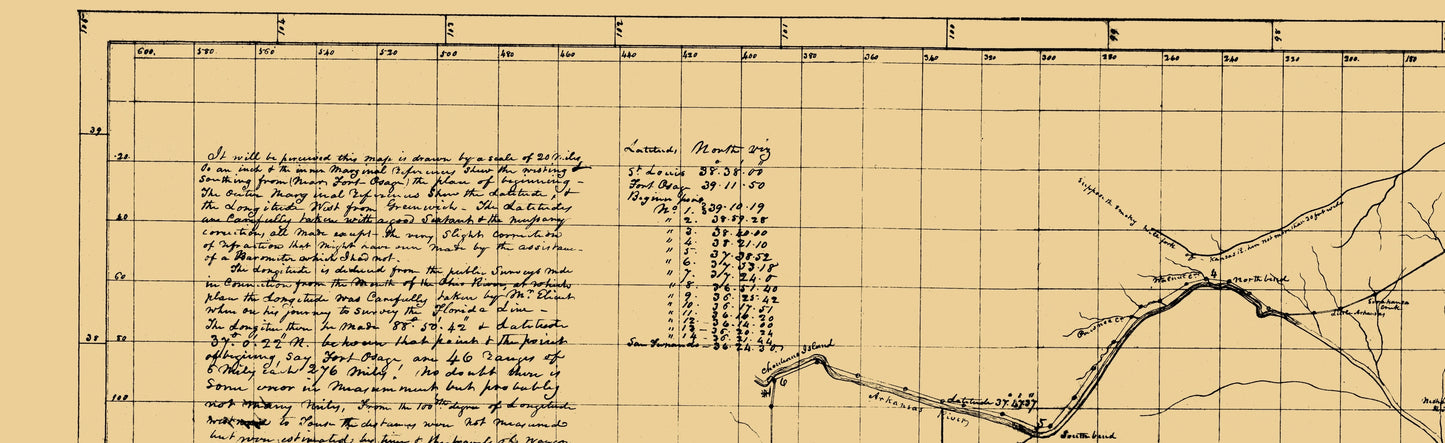 105 104 103 102 101 100 99 98
600. 580 560 540 520 500 480 460 440 420 400 380 360 340 320 300 280 260 240 220 200. 180
39
.20.
40
60
38 80
100
It will be perceived this map is drawn by a scale of 20 Miles
to an inch & the inner Marginal references Shew the westing &
Southing from (Near Fort Osage) the place of beginning –
The Outer Marginal references Shew the Latitude, &
the Longitude West from Greenwich – The Latitudes
are Carefully taken with a good Sextant & the necessary
corrections all made except the very Slight correction
of refraction that might have been made by the assistance
of a Barometer which I had not.
The Longitude is deduced from the public Surveys made
in Connection from the Mouth of the Ohio River, at which
place the Longitude was Carefully taken by Mr. Elicut
when on his journey to Survey the Florida Line –
The Longitude there he made 88° 50' 42" & Latitude
37° 0' 22" N. between that point & the point
of begining, say Fort Osage are 46 Ranges of
6 Mily each 276 Mily! No doubt there is
Some error in Measurement but probably
not many Mily, From the 100th degree of Longitude
to Touse the distances were not measured
but were estimated by time & the
Latitudes North viz
St Louis 38° 38' 00"
Fort Osage 39 . 11 . 50
Begin
No 1. 39 . 10 . 19
" 2. 38 . 57 . 28
" 3. 38 . 40 . 00
" 4. 38 . 21 . 10
" 5. 37 . 38 . 52
" 6. 37 . 33 . 18
" 7. 37 . 24 . 0
" 8 36 . 51 . 40
" 9. 36 . 25 . 42
" 10. 36 . 17 . 51
" 11.
" 12 36 . 14 . 00
" 13
" 14
San Fernando 36 . 24 . 30
Suppos'd Smoky hill fork
of Kansas R.
Walnut Cr
4 North bend
Pawnee Cr
Little Arkansas
Creek
Chouteaus Island
6
Arkansas River
Latitude 37° 47' 37"
5 South bend